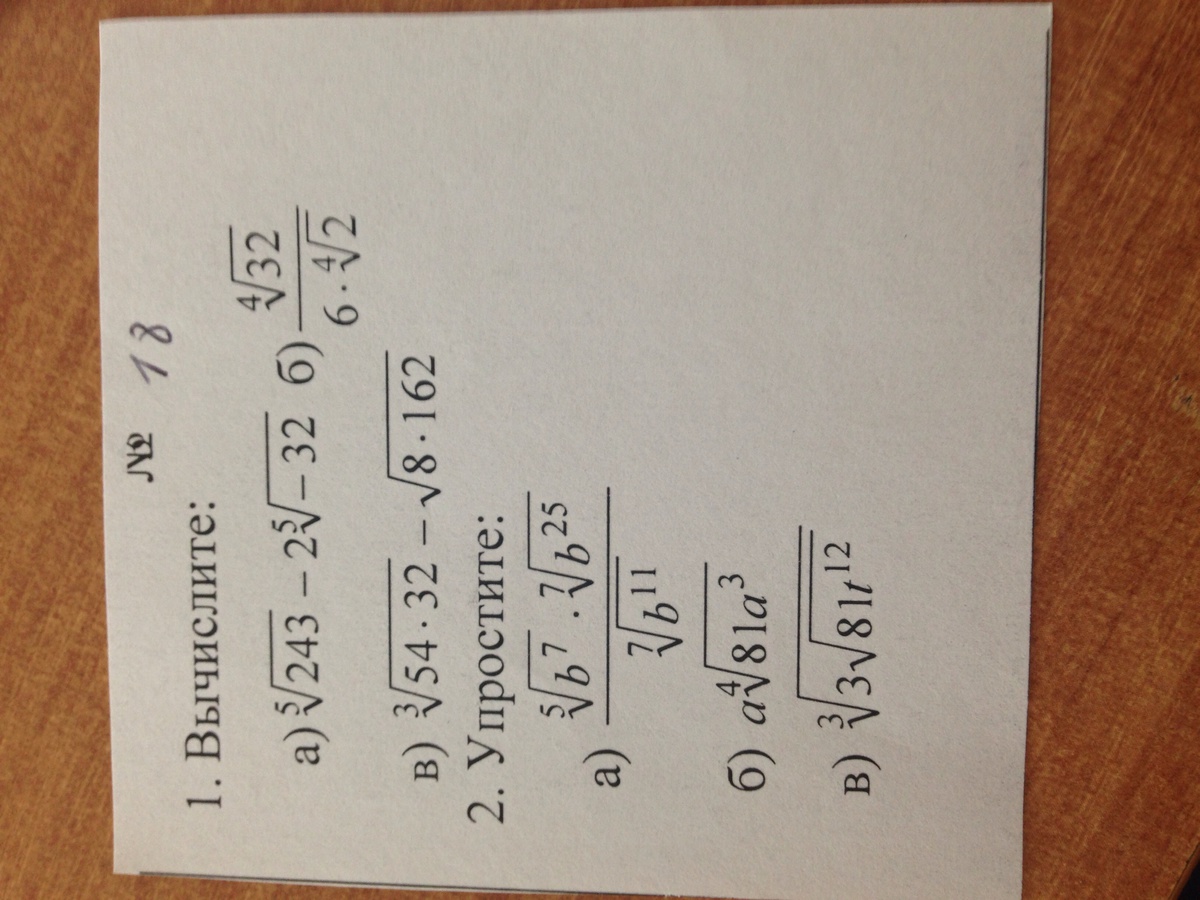 № 18
1. Вычислите:
а) ⁵√243 − 2⁵√−32 б) ⁴√32 / (6 · ⁴√2)
в) ³√(54 · 32) − √(8 · 162)
2. Упростите:
а) (⁵√b⁷ · ⁷√b²⁵) / ⁷√b¹¹
б) a⁴√(81a³)
в) ³√(3√(81t¹²))